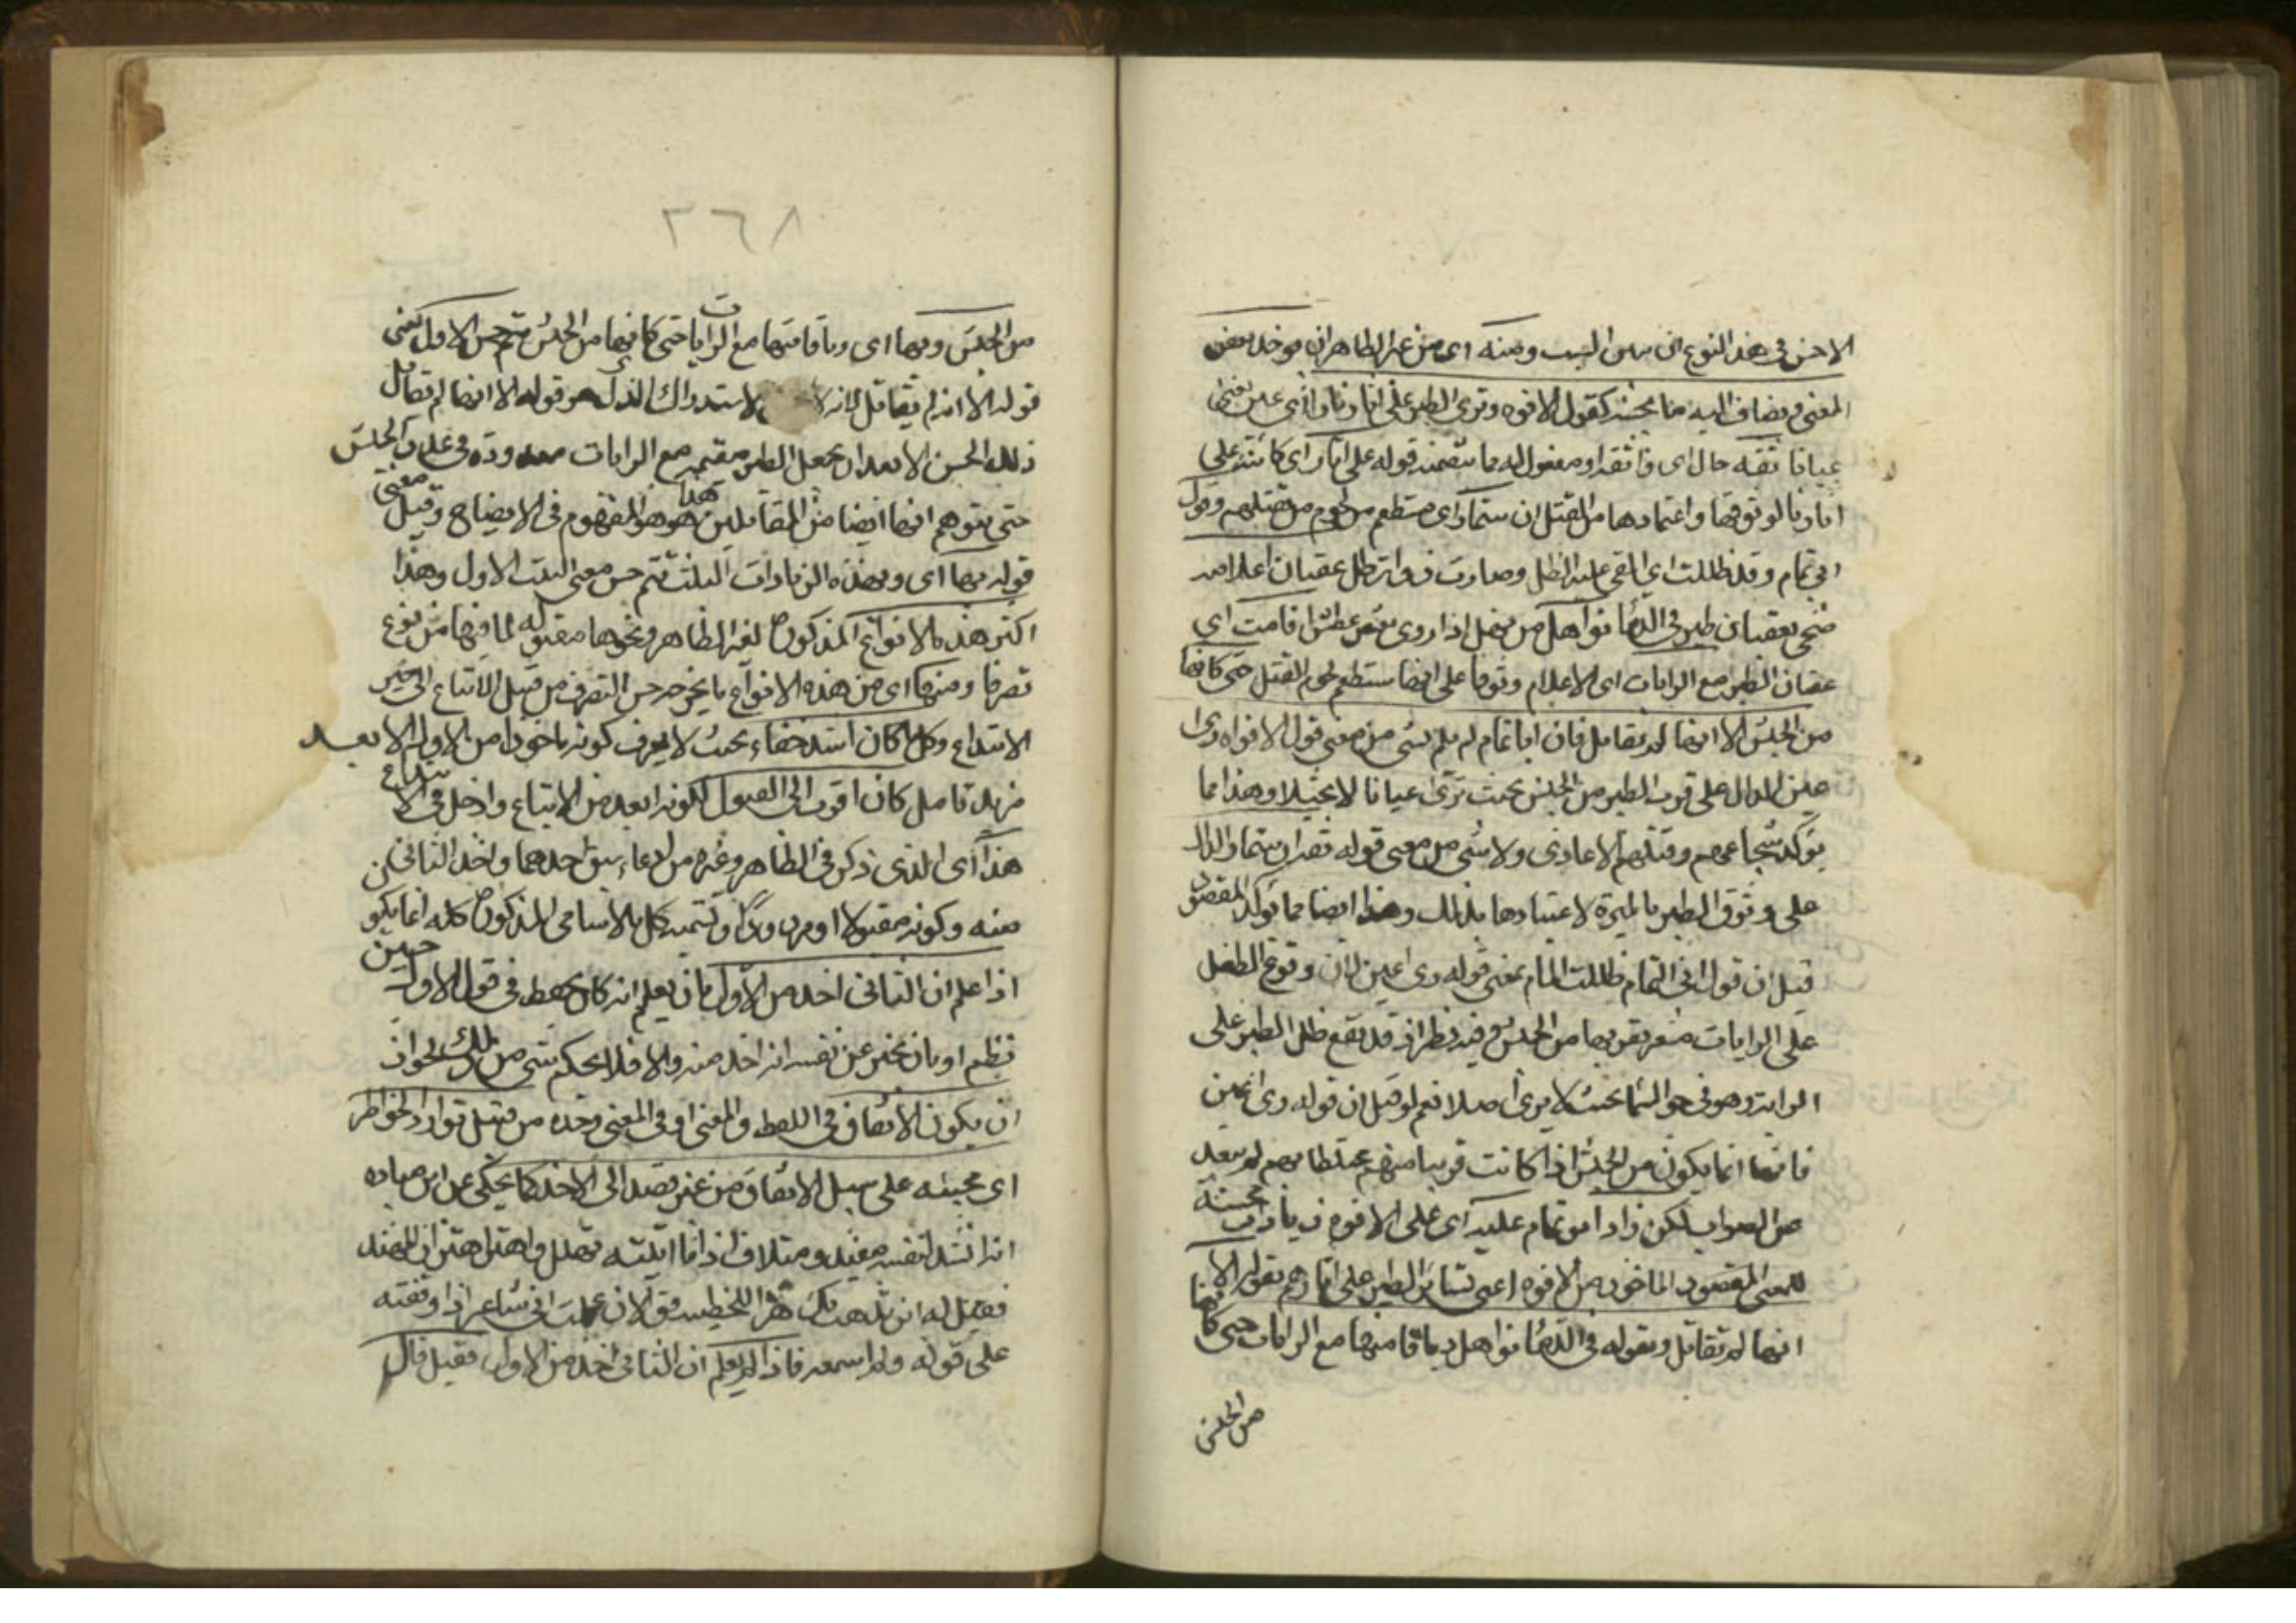 الاخذ في هذا النوع الى من البيت ومنه اي من غير الظاهر ان يوخذ بعض
المعنى ويضاف اليه ما يحسنه كقول الافوه وترى الطير على اثارنا رأي عين يعني
عيانا ثقة حال اي واثقة او مفعول له مما يتضمنه قوله على اثارنا اي كائنة على
اثارنا لوثوقها واعتمادها من القتل ان ستمار اي ستطعم من لحوم من نقتلهم وقول
ابي تمام وقد ظللت اي القي عليه الظل وصارت ذوات ظل عقبان اعلامه
ضحى بعقبان طير في الدماء نواهل من نهل اذا روى نقيض عطش اقامت اي
عقبان الطير مع الرايات اي الاعلام وثوقا على انها ستطعم لحوم القتلى حتى كانها
من الجيش الا انها لم تقاتل فان ابا تمام لم يلم بشى من معنى قول الافواه راى
عين الدال على قرب الطير من الجيش بحيث ترى عيانا لا تخيلا وهذا مما
يؤكد شجاعتهم وقتلهم الاعادى ولا بشى من معنى قوله ثقة ان ستمار الدال
على وثوق الطير بالميرة لاعتيادها بذلك وهذا ايضا مما يؤكد المقصود
قيل ان قول ابي التمام ظللت المام بمعنى قوله راى عين لان وقوع الظل
على الرايات مشعر بقربها من الجيش وفيه نظر اذ قد يقع ظل الطير على
الراية وهو في جو السماء بحيث لا يرى اصلا نعم لو قيل ان قوله راى عين
فانها انما يكون من الجيش اذا كانت قريبا منهم مختلطا بهم لم يبعد
من الصواب لكن زاد ابو تمام عليه اي على الافوه زيادات محسنة
للمعنى المقصود الماخوذ من الافوه اعني تساير الطير على اثارهم بقوله الا
انها لم تقاتل وبقوله في الدماء نواهل وباقامتها مع الرايات حتى كانها
من الجيش
٢٦٨
من الجيش وبها اي وباقامتها مع الرايات حتى كانها من الجيش يتم حسن الاول يعني
قوله الا انها لم تقاتل لانه لا يحسن الاستدراك الذي هو قوله الا انها لم تقاتل
ذلك الحسن الا بعد ان يجعل الطير مقيمة مع الرايات معدودة في عداد الجيش
حتى يتوهم انها ايضا من المقاتلين هذا هو المفهوم في الايضاح وقيل معنى
قوله بها اي وبهذه الزيادات الثلث يتم حسن معنى البيت الاول وهذا
اكثر هذه الانواع المذكورة لغير الظاهر ونحوها مقبولة لما فيها من نوع
تصرف ومنها اي من هذه الانواع ما يخرجه حسن التصرف من قبيل الاتباع الى حيز
الابتداع وكل ما كان اشد خفاء بحيث لا يعرف كونه ماخوذا من الاول الا بعد
مزيد تامل كان اقرب الى القبول لكونه ابعد من الاتباع وادخل في الابتداع
هذا اي الذي ذكر في الظاهر وغيره من ادعاء سبق احدهما واخذ الثاني
منه وكونه مقبولا او مردودا وتسمية كل بالاسامى المذكورة كله انما يكون
اذا علم ان الثاني اخذ من الاول بان يعلم انه كان يحفظ في قول الاول حين
نظم او بان يخبر عن نفسه انه اخذ منه والا فلا يحكم بشى من ذلك لجواز
ان يكون الاتفاق في اللفظ والمعنى او في المعنى وحده من قبيل توارد الخواطر
اي مجيئه على سبيل الاتفاق من غير قصد الى الاخذ كما يحكى عن ابن ميادة
انه انشد لنفسه مفيد ومتلاف اذا ما اتيته تهلل واهتز اهتزاز المهند
فقيل له اين يذهب بك هذا للحطيئة فقال الان علمت اني شاعر اذا وفقته
على قوله ولم اسمعه فاذا لم يعلم ان الثاني اخذ من الاول فقيل قال